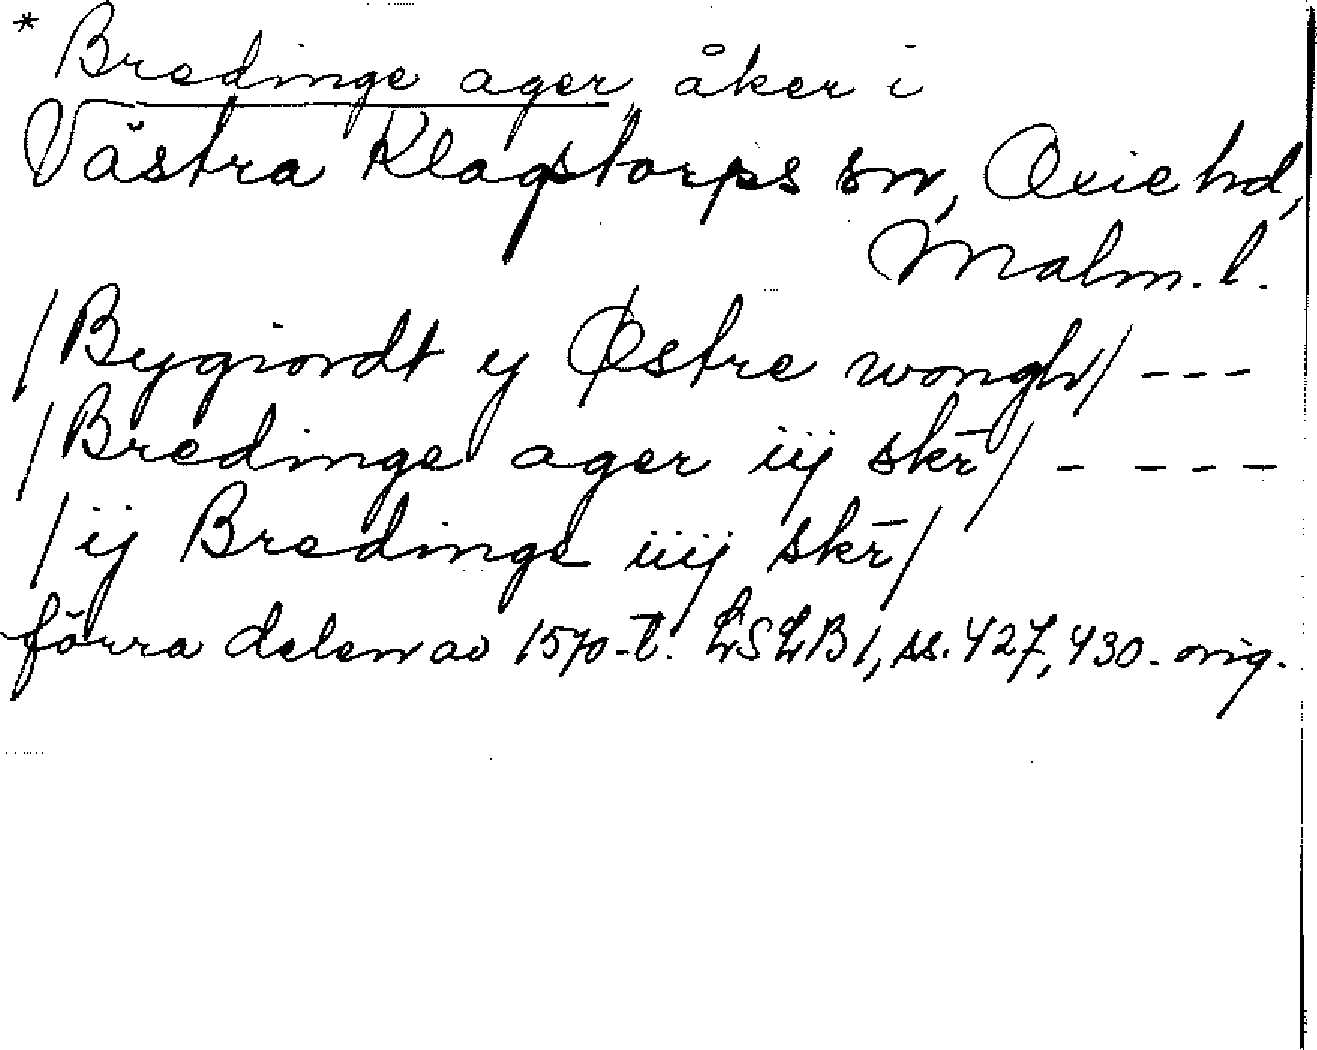 * Bredinge ager, åker i
Västra Klagstorps sn, Oxie hd,
Malm. l.
/Bygiordt ij Østre wongh/ ---
/Bredinge ager iij skr̄/ - - - -
/ij Bredinge iiij skr̄/
förra delen av 1570-t. LSLB1, ss. 427, 430. orig.